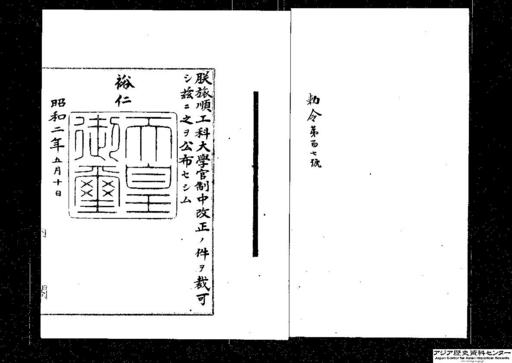 勅令第百七號
朕旅順工科大學官制中改正ノ件ヲ裁可
シ玆ニ之ヲ公布セシム
裕仁
天皇御璽
昭和二年五月十日
内
閣
アジア歴史資料センター
Japan Center for Asian Historical Records